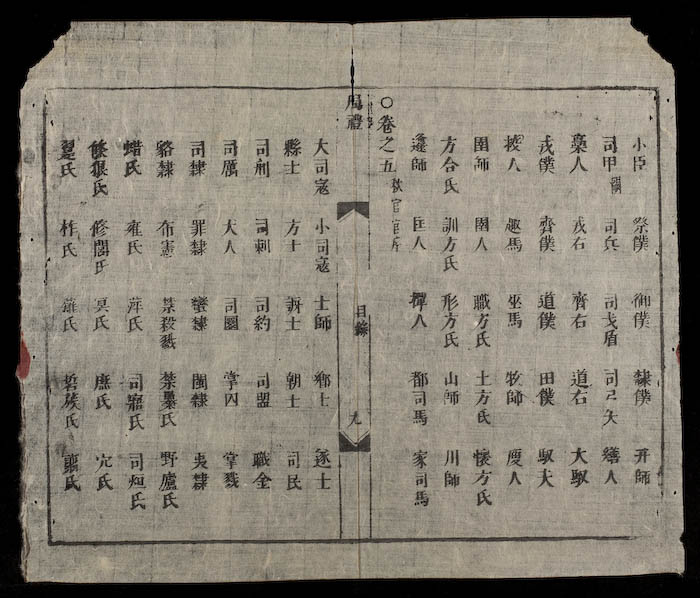 小臣 祭僕 御僕 隸僕 弁師
司甲闕 司兵 司戈盾 司弓矢 繕人
槀人 戎右 齊右 道右 大馭
戎僕 齊僕 道僕 田僕 馭夫
校人 趣馬 巫馬 牧師 廋人
圉師 圉人 職方氏 土方氏 懷方氏
方合氏 訓方氏 形方氏 山師 川師
邍師 匡人 撢人 都司馬 家司馬
○卷之五 秋官
周禮 目錄 九
大司寇 小司寇 士師 鄉士 遂士
縣士 方士 訝士 朝士 司民
司刑 司刺 司約 司盟 職金
司厲 犬人 司圜 掌囚 掌戮
司隸 罪隸 蠻隸 閩隸 夷隸
貉隸 布憲 禁殺戮 禁暴氏 野廬氏
蜡氏 雍氏 萍氏 司寤氏 司烜氏
條狼氏 修閭氏 冥氏 庶氏 穴氏
翨氏 柞氏 薙氏 硩蔟氏 翦氏